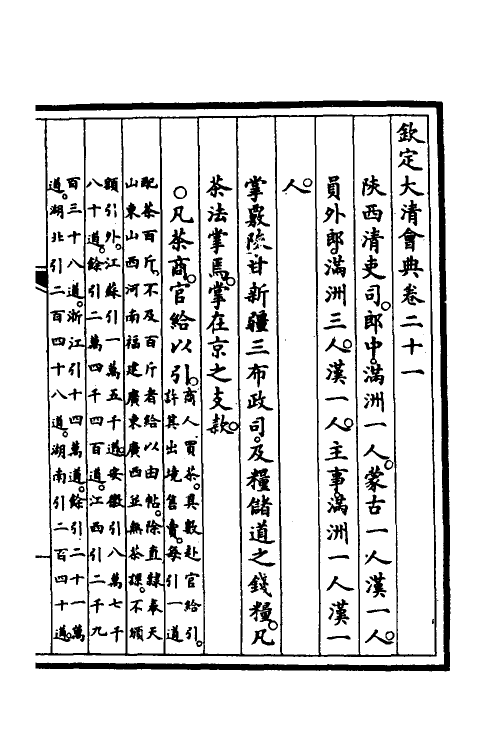 欽定大清會典卷二十一
陝西清吏司。郎中。滿洲一人。蒙古一人漢一人。
員外郎。滿洲三人。漢一人。主事。滿洲一人漢一
人。
掌覈陝甘新疆三布政司。及糧儲道之錢糧。凡
茶法掌焉。掌在京之支款。
○凡茶商。官給以引。
商人買茶。具數赴官給引。
許其出境售賣。每引一道
配茶百斤。不及百斤者給以由帖。除直隸奉天
山東山西河南福建廣東廣西並無茶課。不頒
額引外。江蘇引一萬五千道。安徽引八萬七千
八十道。餘引二萬四千四百道。江西引二千九
百三十八道。浙江引十四萬道。餘引二十一萬
道。湖北引二百四十八道。湖南引二百四十道。